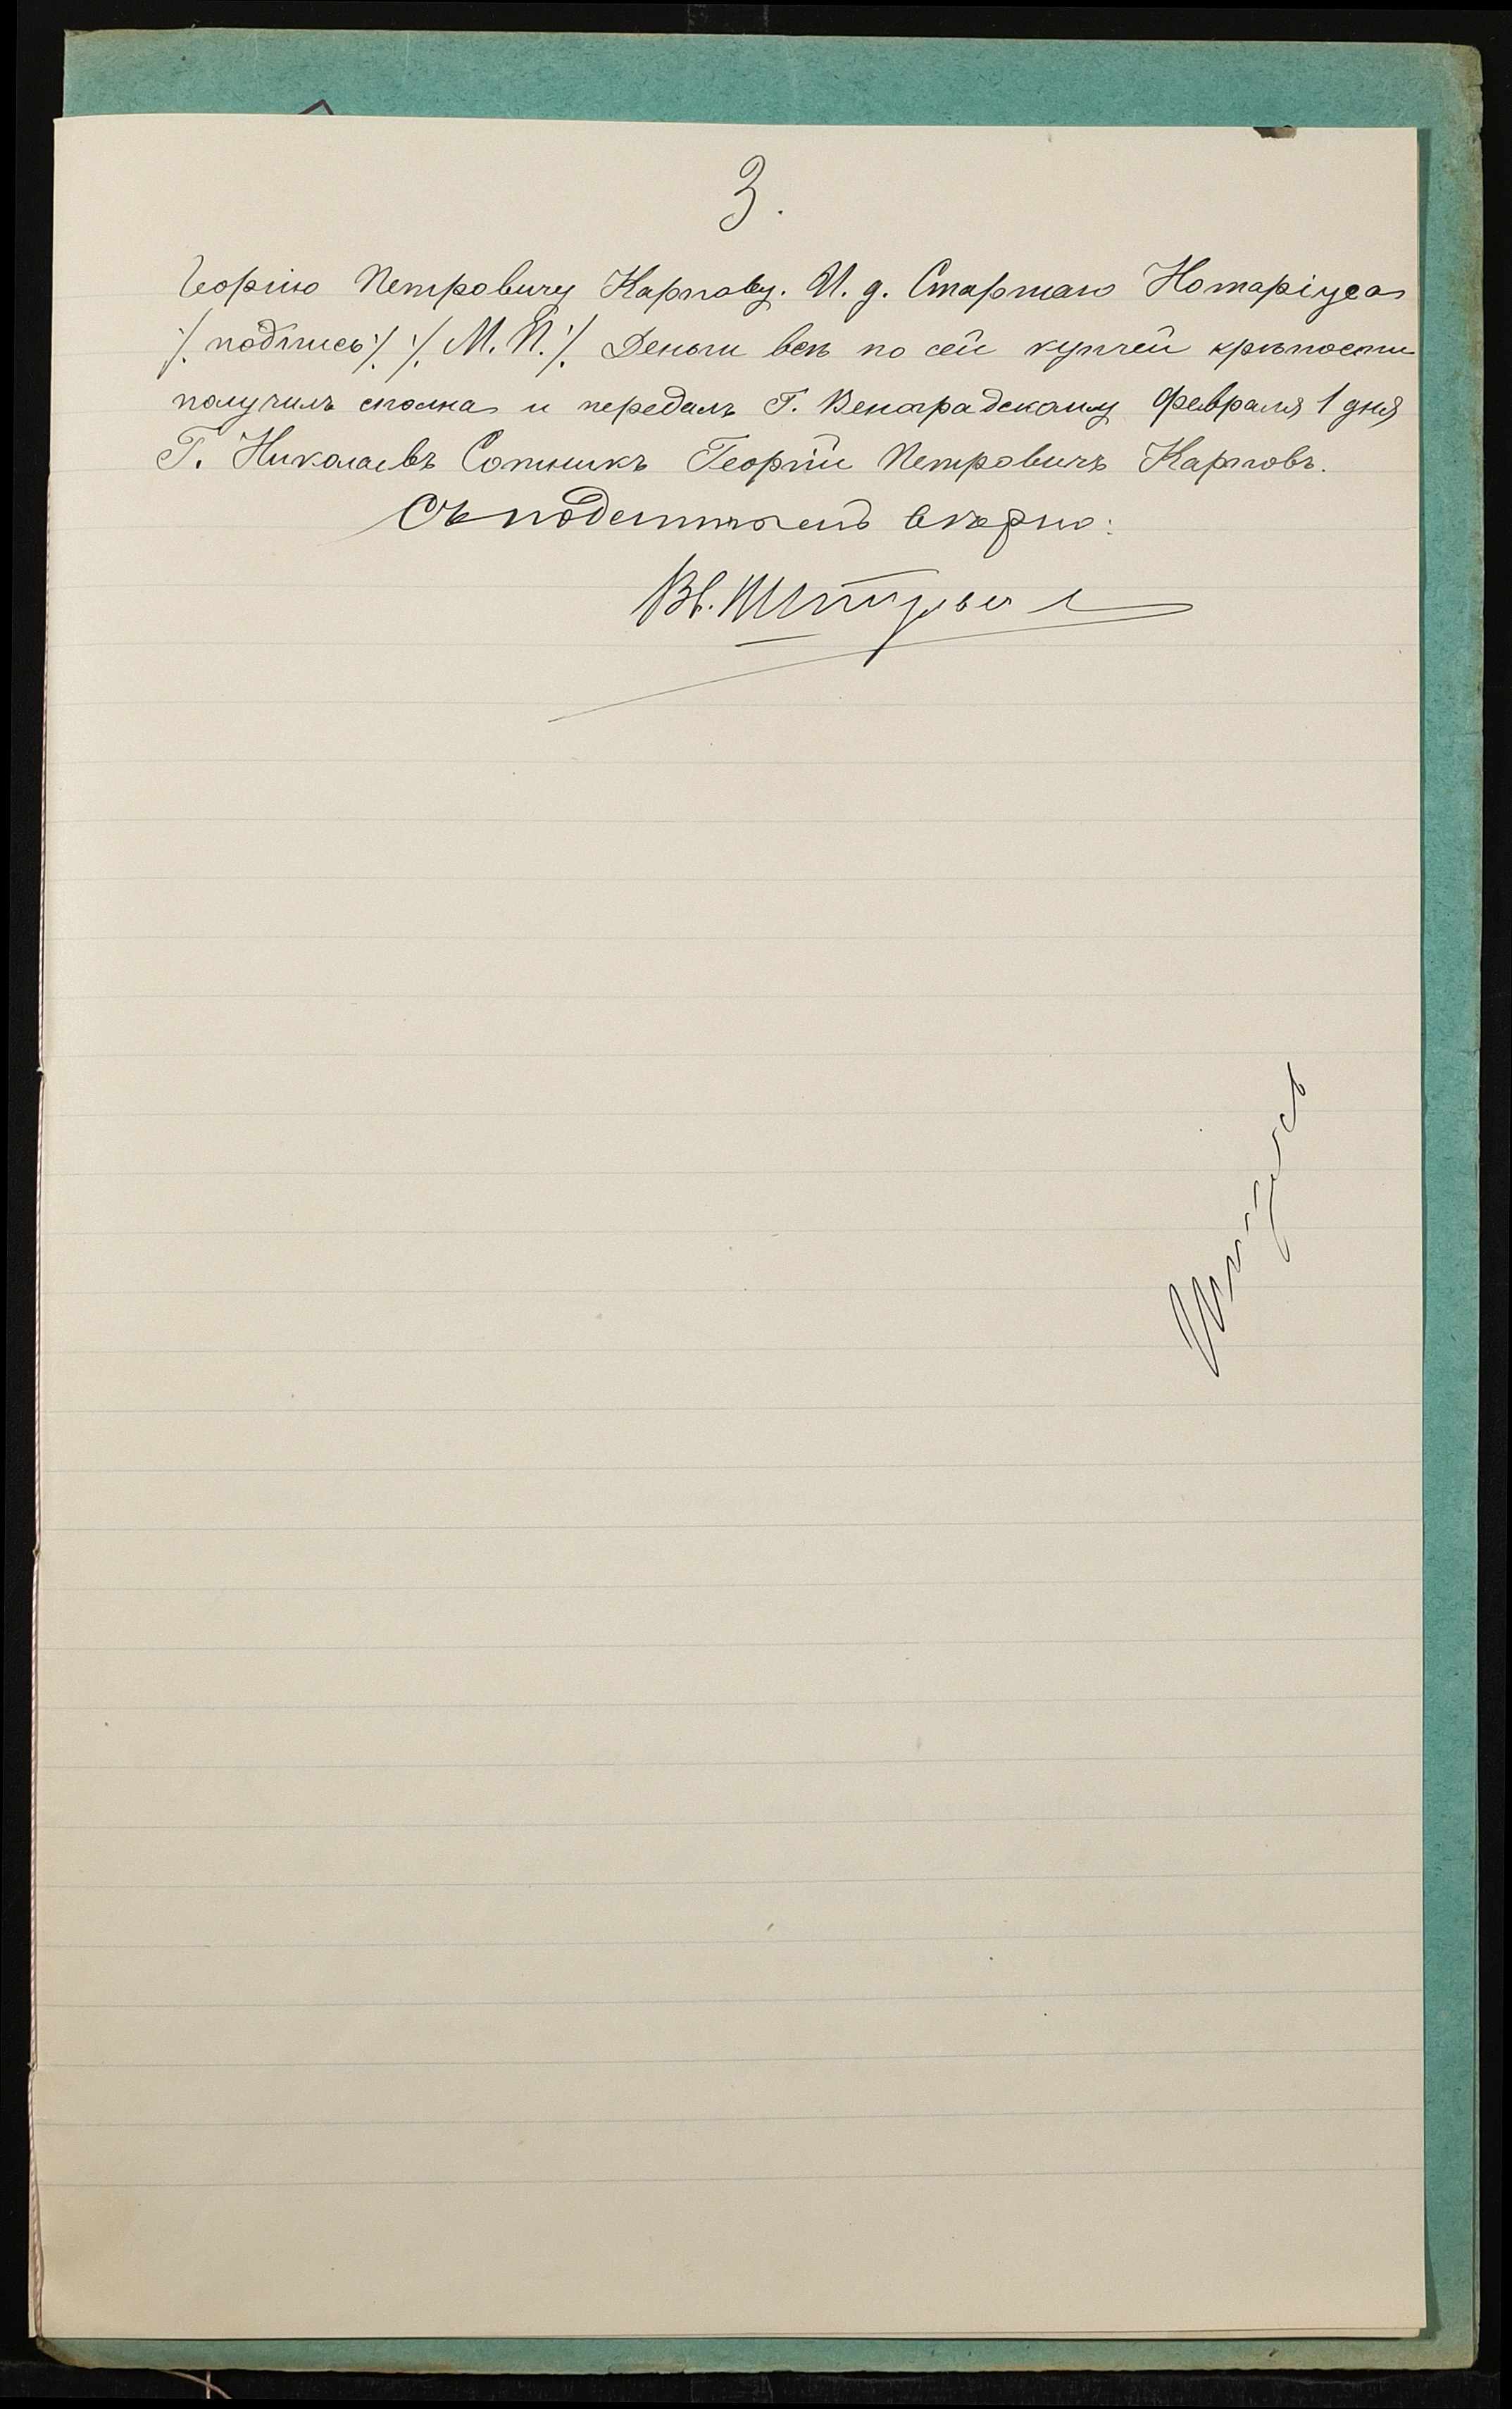 3.
Георгію Петровичу Карпову. И. д. Старшаго Нотаріуса
/подпись/ /М. П./ Деньги всѣ по сей купчей крѣпости
получилъ сполна и передалъ Г. Веноградскому Февраля 1 дня
Г. Николаевъ Сотникъ Георгій Петровичъ Карповъ.
Съ подлиннымъ вѣрно:
Вл.